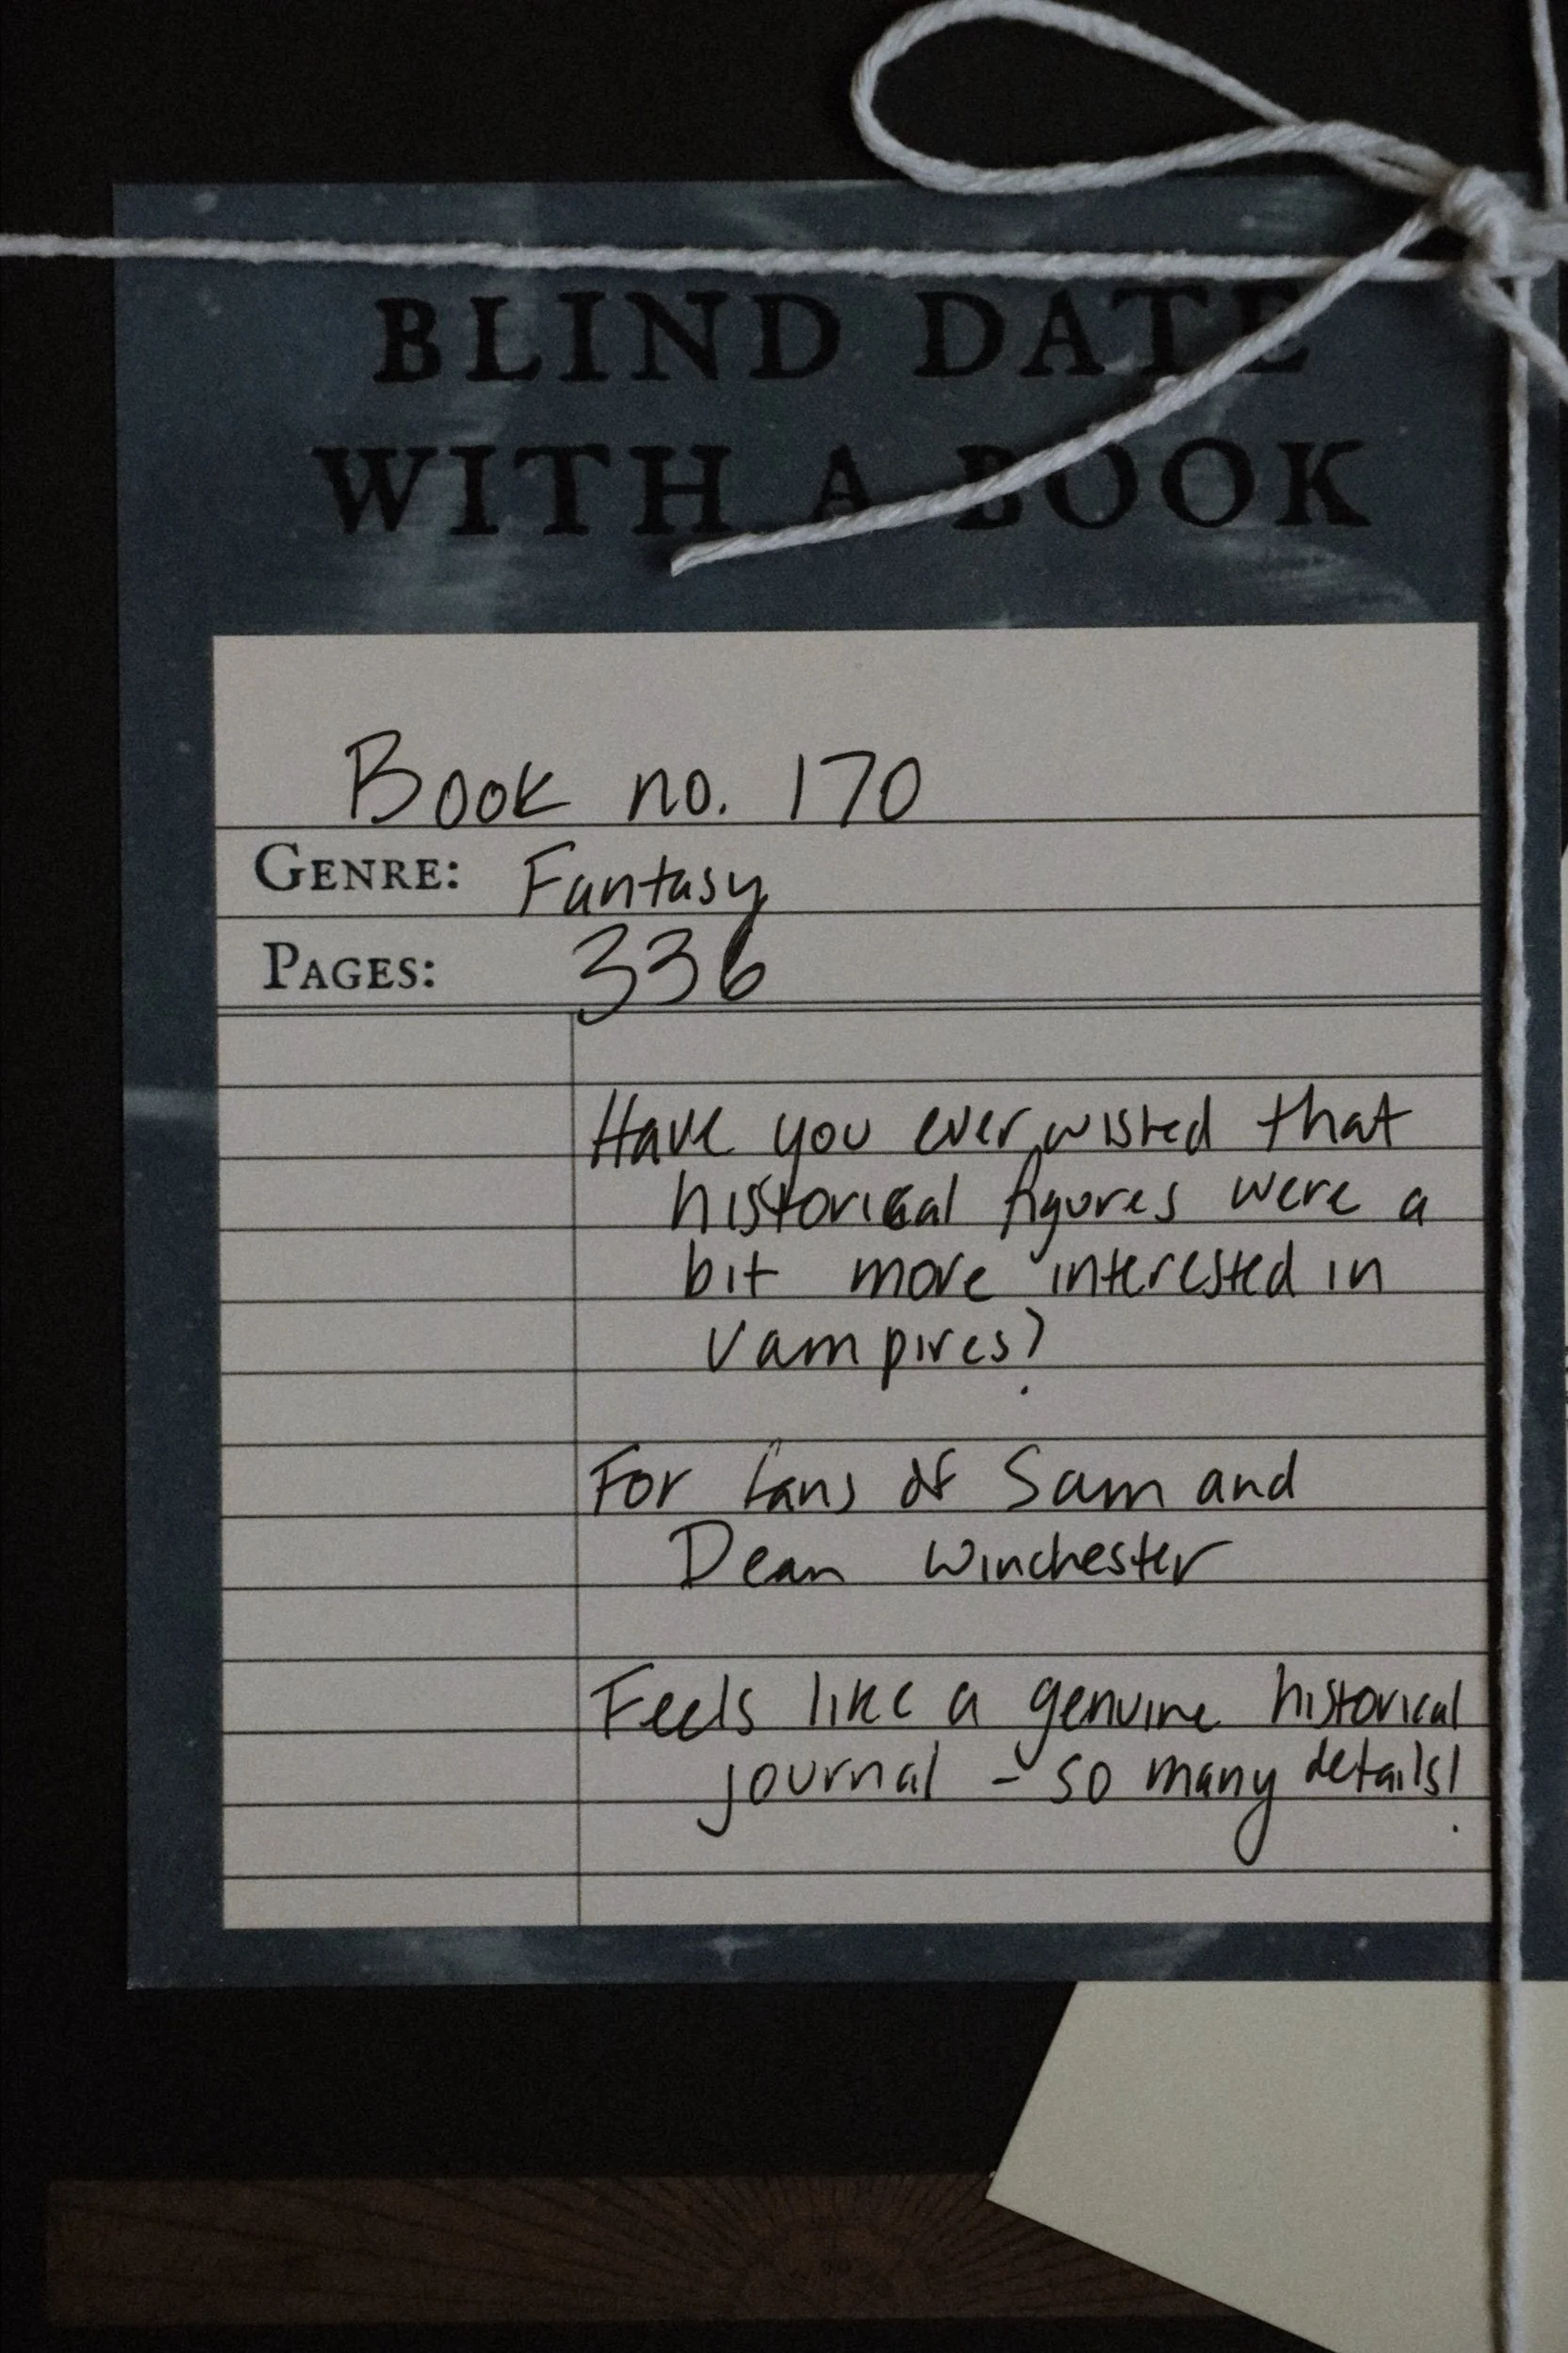 BLIND DATE
WITH A BOOK
Book no. 170
GENRE: Fantasy
PAGES: 336
Have you ever wished that
historical figures were a
bit more interested in
vampires?
For fans of Sam and
Dean Winchester
Feels like a genuine historical
journal - so many details!